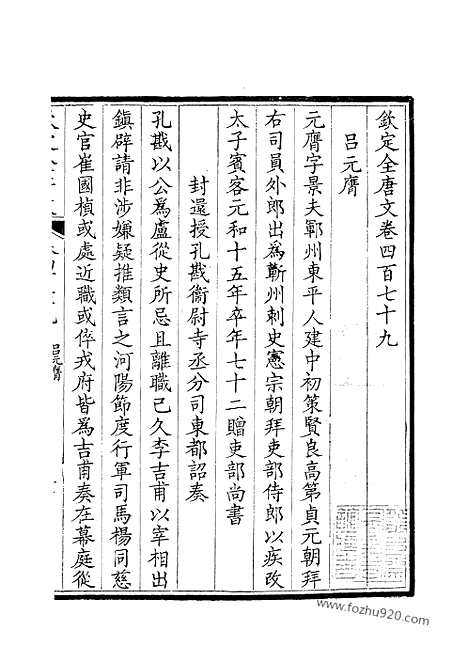 欽定全唐文卷四百七十九
呂元膺
元膺字景夫鄆州東平人建中初策賢良高第貞元朝拜
右司員外郎出為蘄州刺史憲宗朝拜吏部侍郎以疾改
太子賓客元和十五年卒年七十二贈吏部尚書
封還授孔戡衞尉寺丞分司東都詔奏
孔戡以公為盧從史所忌且離職已久李吉甫以宰相出
鎮辟請非涉嫌疑推類言之河陽節度行軍司馬楊同慈
史官崔國楨或處近職或倅戎府皆為吉甫奏在幕庭從
呂元膺
www.fozhu920.com